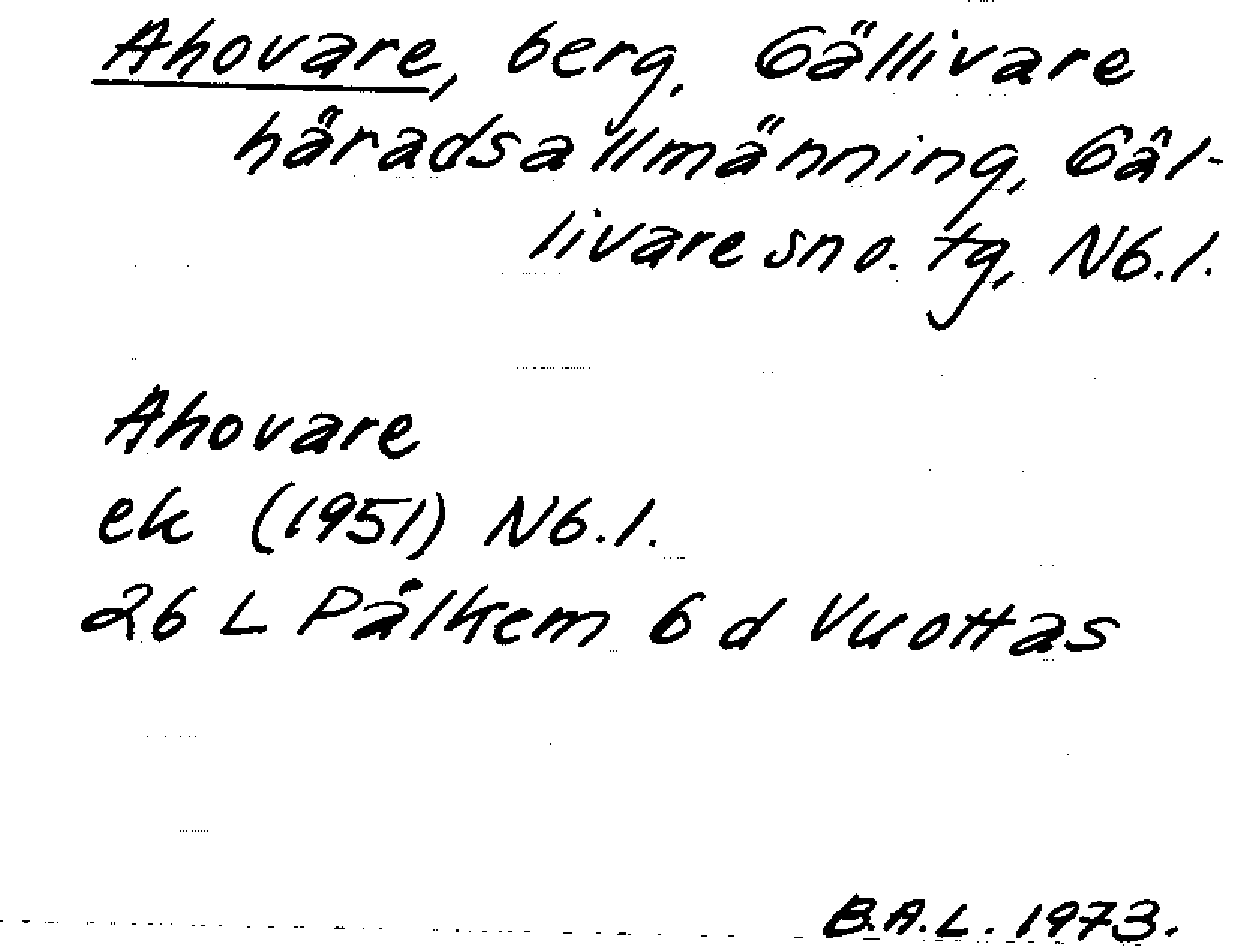 Ahovare, berg, Gällivare
häradsallmänning, Gäl-
livare sn o. tg, Nb.l.
Ahovare
ek (1951) Nb.l.
26 L Pålkem 6 d Vuottas
B.A.L. 1973.